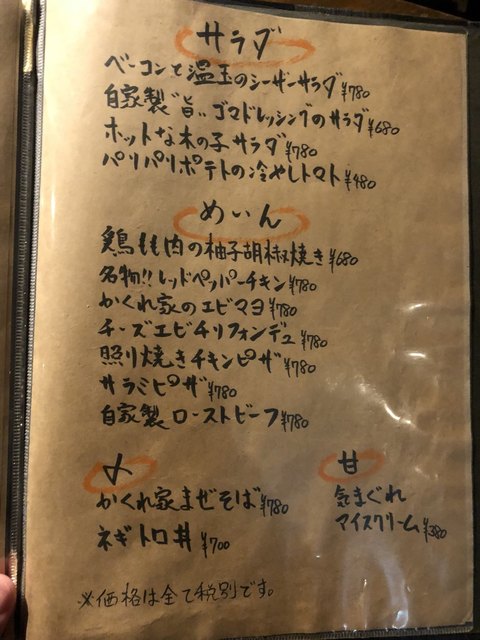 サラダ
ベーコンと温玉のシーザーサラダ ¥780
自家製"旨"ゴマドレッシングのサラダ ¥680
ホットな木の子サラダ ¥780
パリパリポテトの冷やしトマト ¥480
めいん
鶏もも肉の柚子胡椒焼き ¥680
名物!!レッドペッパーチキン ¥780
かくれ家のエビマヨ ¥780
チーズエビチリフォンデュ ¥780
照り焼きチキンピザ ¥780
サラミピザ ¥780
自家製ローストビーフ ¥780
〆
かくれ家まぜそば ¥780
ネギトロ丼 ¥700
甘
気まぐれ
アイスクリーム ¥380
※価格は全て税別です。